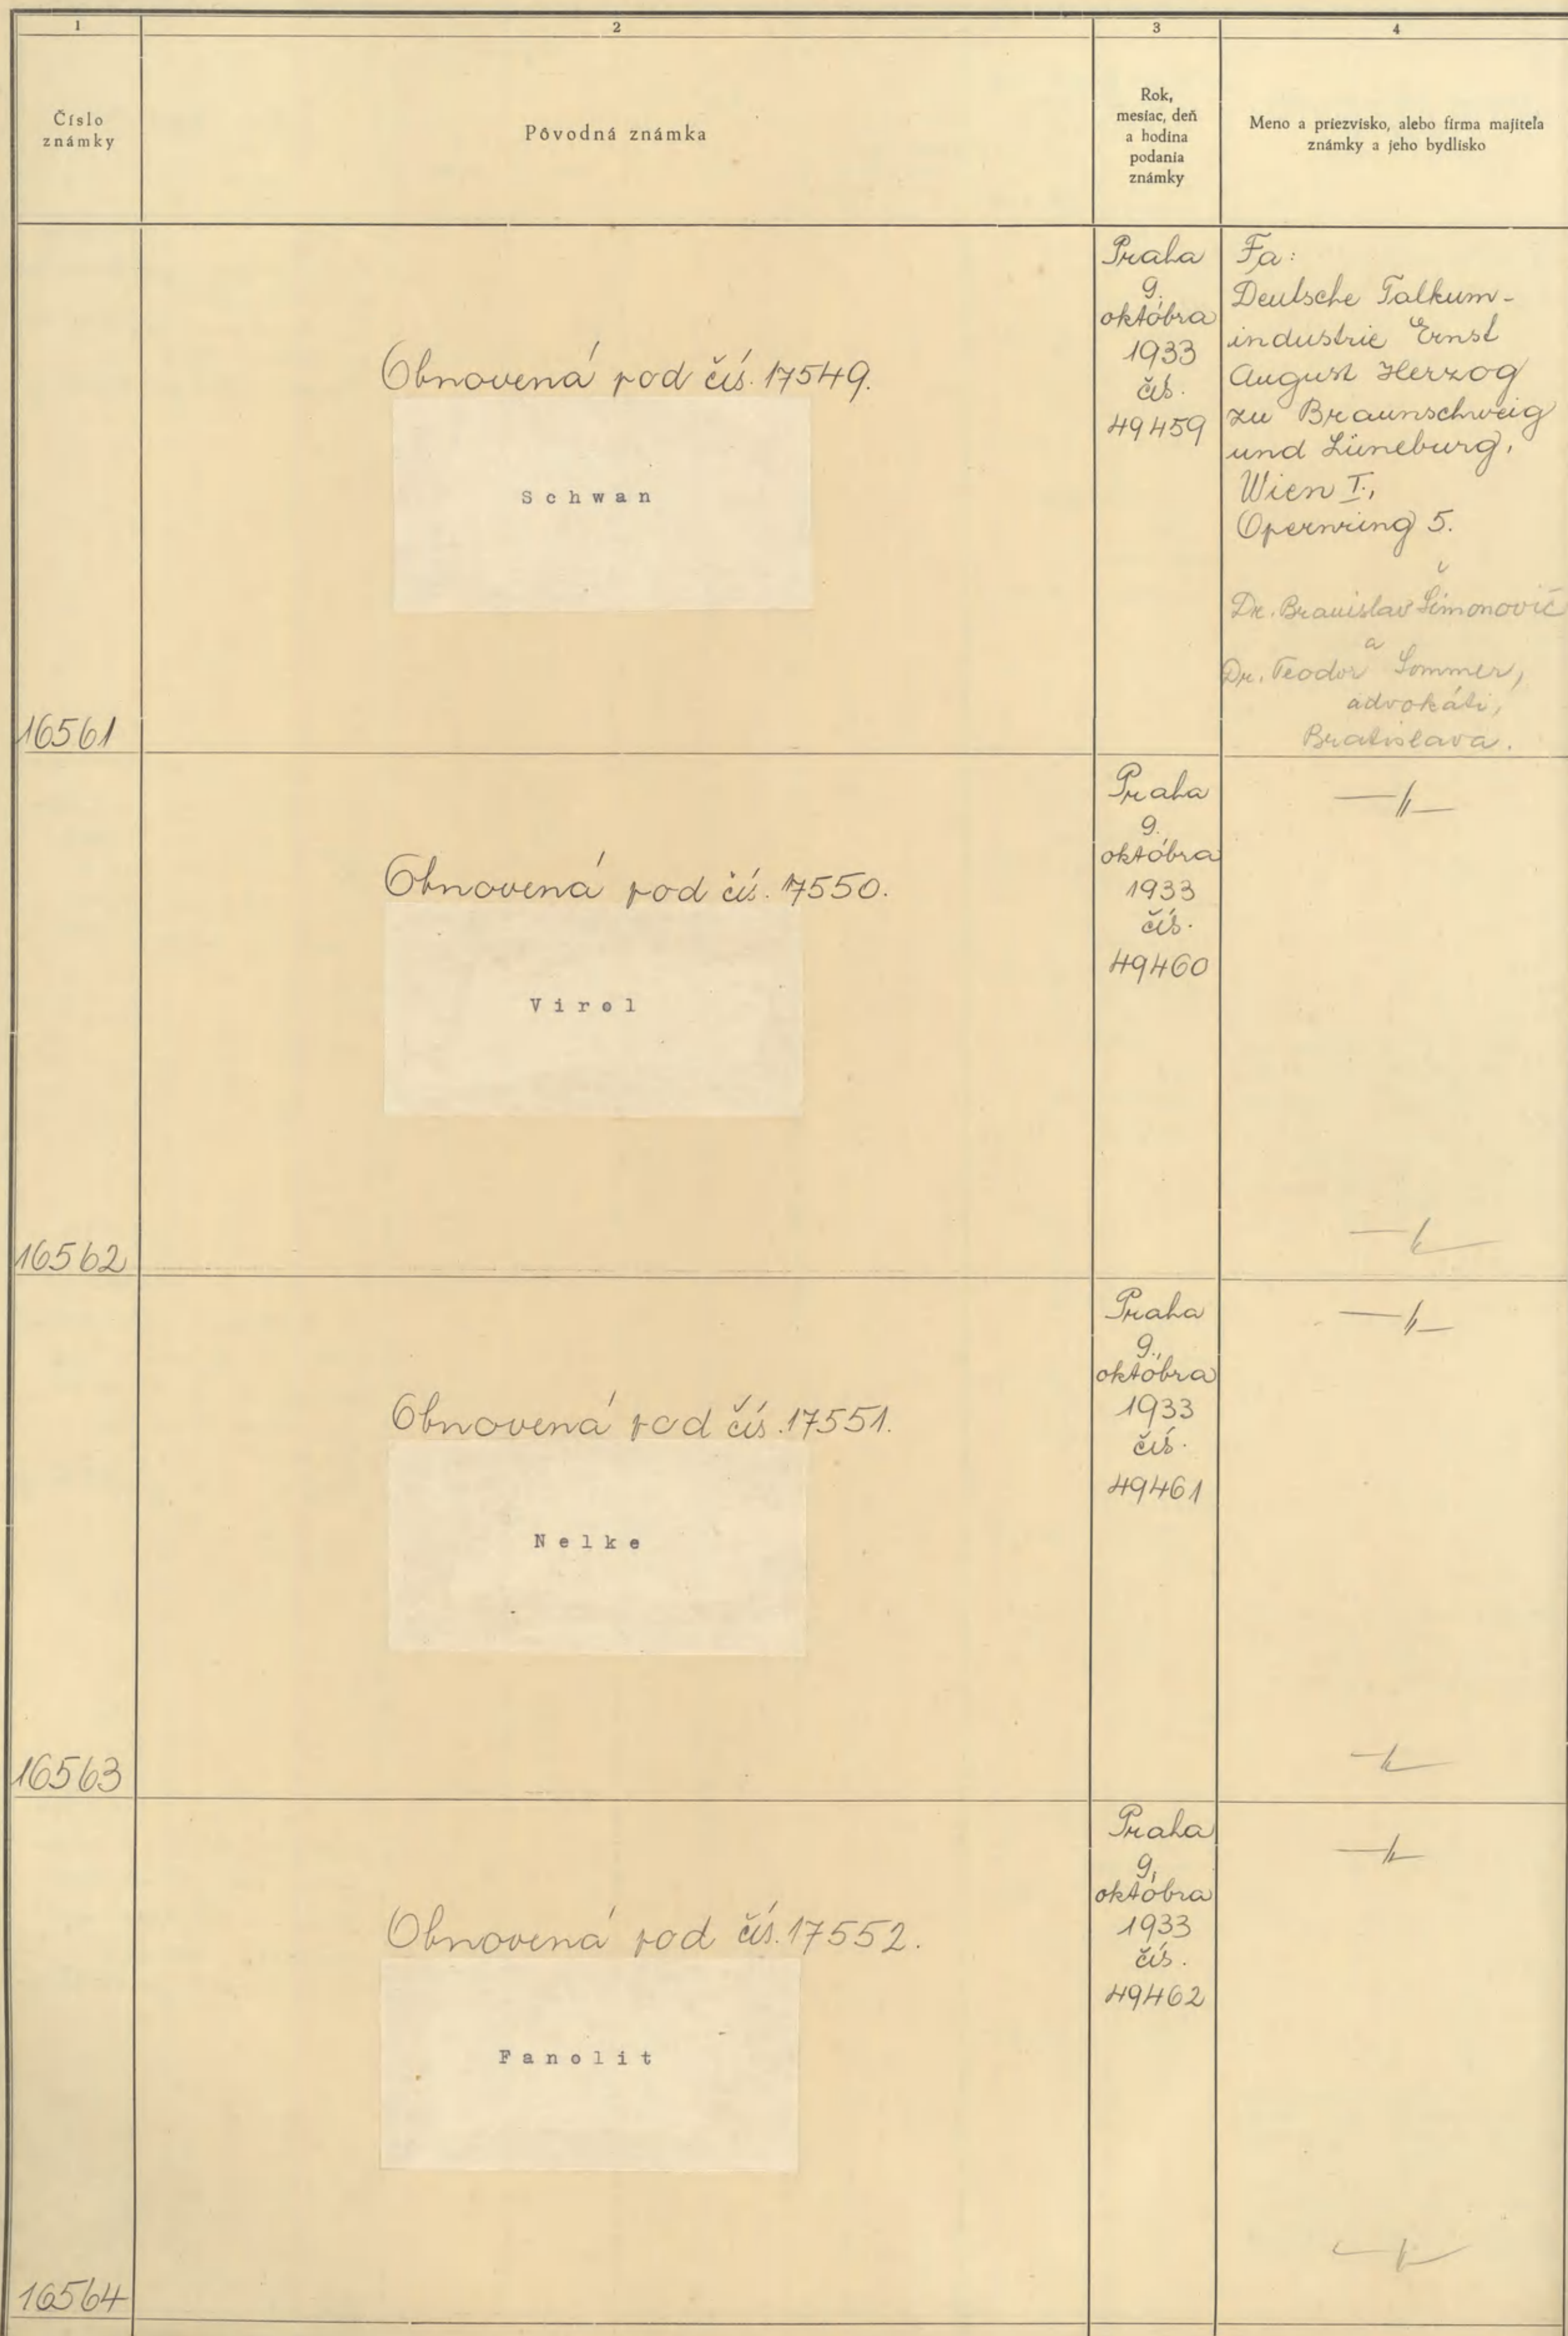 1
2
3
4
Číslo
známky
Pôvodná známka
Rok,
mesiac, deň
a hodina
podania
známky
Meno a priezvisko, alebo firma majiteľa
známky a jeho bydlisko
16561
Obnovená pod čís. 17549.
Schwan
Praha
9.
októbra
1933
čís.
49459
Fa:
Deutsche Talkum-
industrie Ernst
August Herzog
zu Braunschweig
und Lüneburg,
Wien I.,
Opernring 5.
Dr. Branislav Šimonovič
a
Dr. Teodor Sommer,
advokáti,
Bratislava.
16562
Obnovená pod čís. 17550.
Virol
Praha
9.
októbra
1933
čís.
49460
—"—
—"—
16563
Obnovená pod čís. 17551.
Nelke
Praha
9.,
októbra
1933
čís.
49461
—"—
—"—
16564
Obnovená pod čís. 17552.
Fanolit
Praha
9,
októbra
1933
čís.
49462
—"—
—"—